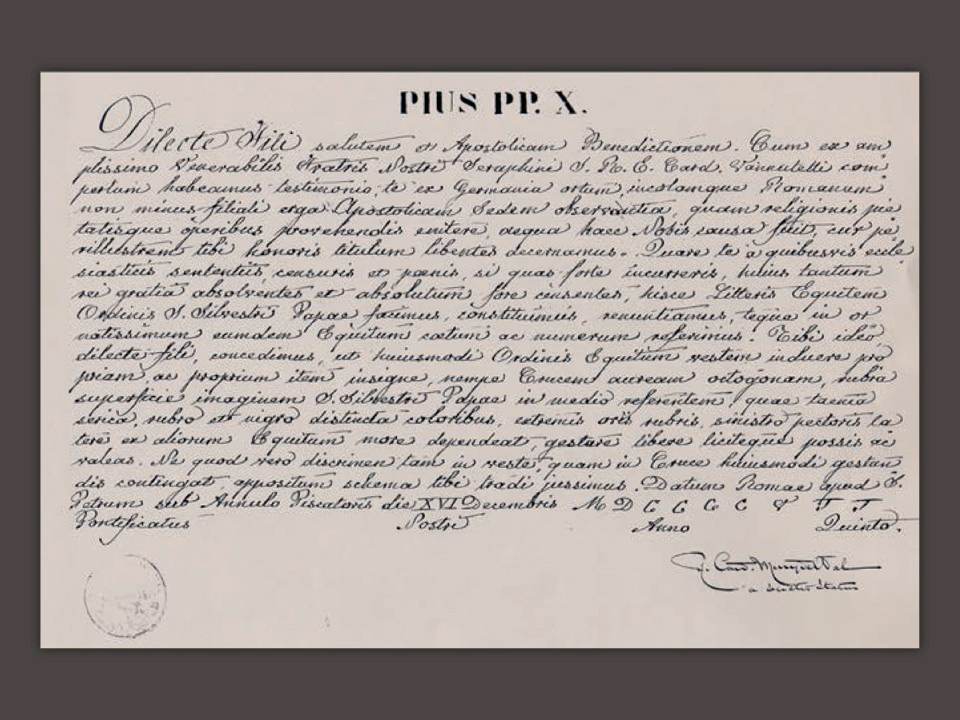 PIUS PP. X.
Dilecte Fili salutem et Apostolicam Benedictionem. Cum ex am
plissimo Venerabilis Fratris Nostri Seraphini S. R. E. Card. Vannutelli com
pertum habeamus testimonio, te ex Germania ortum, incolamque Romanum
non minus filiali erga Apostolicam Sedem observantia, quam religionis pie
tatisque operibus provehendis enitere, aequa haec Nobis causa fuit, cur pe
rillustrem tibi honoris titulum libentes decernamus. Quare te a quibusvis eccle
siasticis sententiis, censuris et poenis, si quas forte incurreris, huius tantum
rei gratia absolventes et absolutum fore censentes, hisce Litteris Equitem
Ordinis S. Silvestri Papae facimus, constituimus, renuntiamus, teque in or
natissimum eumdem Equitum coetum ac numerum referimus. Tibi ideo,
dilecte fili, concedimus, ut huiusmodi Ordinis Equitum vestem induere pro
priam, ac proprium item insigne, nempe Crucem auream octogonam, rubra
superficie imaginem S. Silvestri Papae in medio referentem, quae taenia
serica, rubro et nigro distincta coloribus, extremis oris rubris, sinistro pectoris la
tere ex aliorum Equitum more dependeat, gestare libere liciteque possis ac
valeas. Ne quod vero discrimen tam in veste, quam in Cruce huiusmodi gestan
dis contingat, appositum schema tibi tradi jussimus. Datum Romae apud S.
Petrum sub Annulo Piscatoris die XVI Decembris M D C C C C V I I
Pontificatus Nostri Anno Quinto.
R. Card. Merry del Val
a Secretis Status